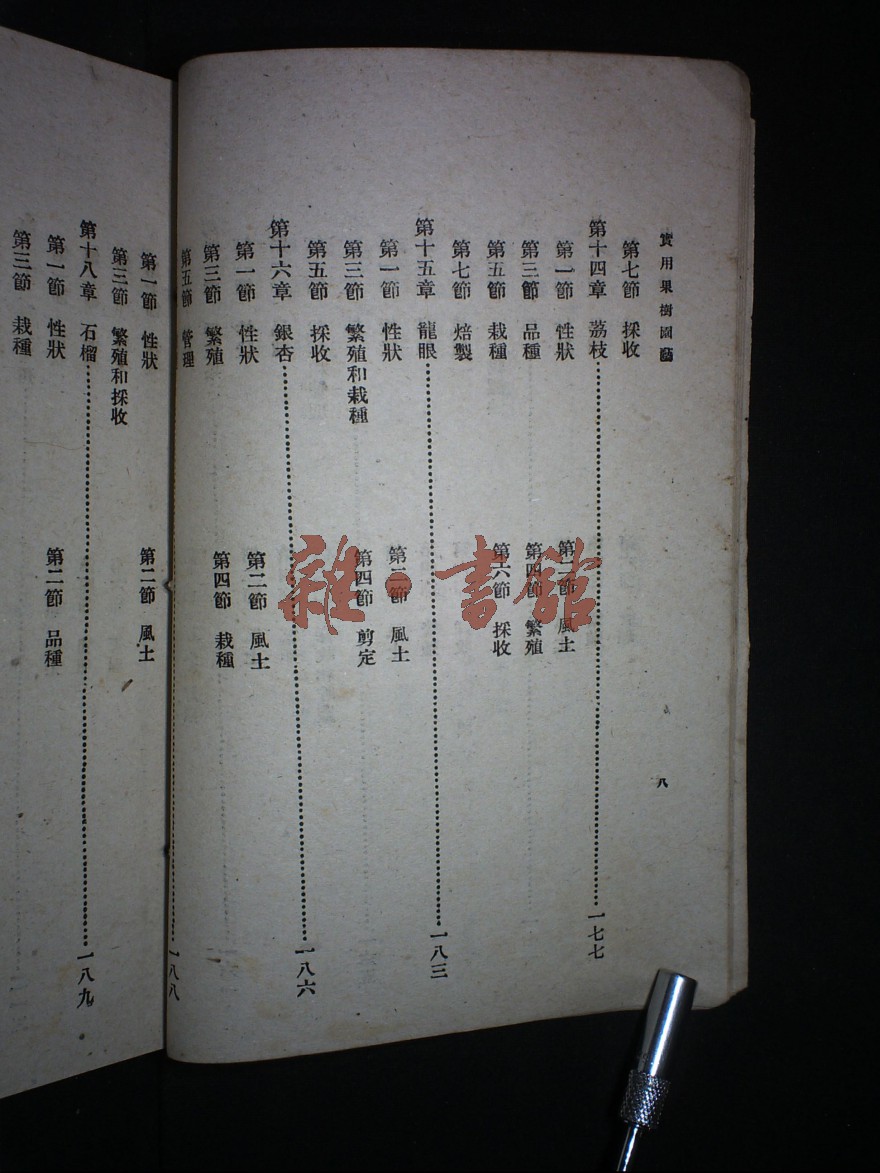 實用果樹園藝
八
第七節 採收
第十四章 荔枝……一七七
第一節 性狀 第二節 風土
第三節 品種 第四節 繁殖
第五節 栽種 第六節 採收
第七節 焙製
第十五章 龍眼……一八三
第一節 性狀 第二節 風土
第三節 繁殖和栽種 第四節 剪定
第五節 採收
第十六章 銀杏……一八六
第一節 性狀 第二節 風土
第三節 繁殖 第四節 栽種
第五節 管理
一八八
第一節 性狀 第二節 風土
第三節 繁殖和採收
第十八章 石榴……一八九
第一節 性狀 第二節 品種
第三節 栽種
雜·書館